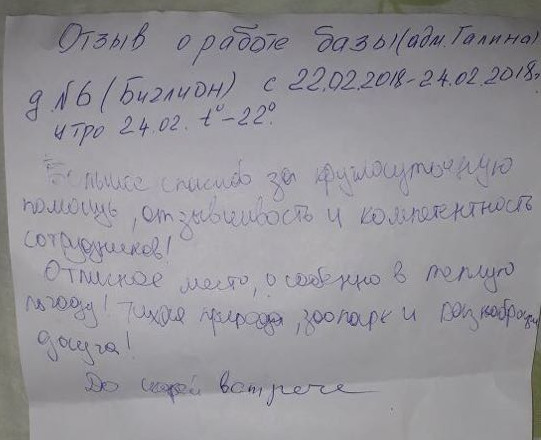 Отзыв о работе базы (адм. Галина)
д №6 (Биглион) с 22.02.2018-24.02.2018г.
утро 24.02. t°-22°.
Большое спасибо за круглосуточную
помощь, отзывчивость и компетентность
сотрудников!
Отличное место, особенно в теплую
погоду! Тихая природа, зоопарк и
досуга!
До встрече